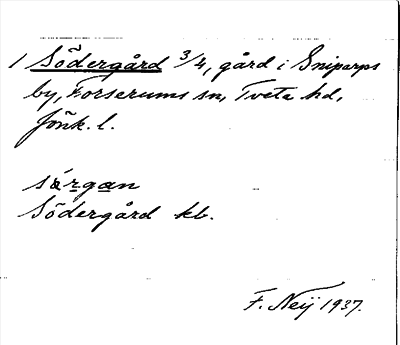 1 Södergård 3/4, gård i Sniparps
by, Forserums sn, Tveta hd,
Jönk. l.
särgan
Södergård kb.
F. Neij 1937.